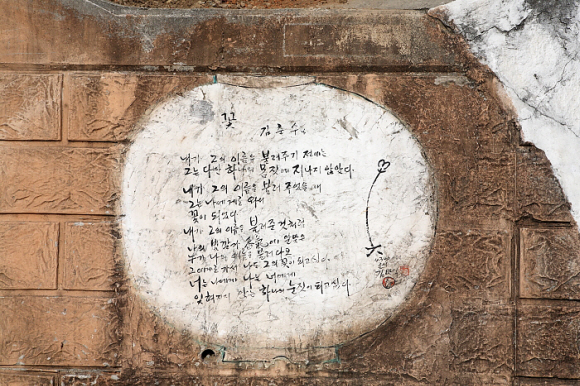 꽃
김춘수
내가 그의 이름을 불러주기 전에는
그는 다만 하나의 몸짓에 지나지 않았다.
내가 그의 이름을 불러 주었을 때
그는 나에게로 와서
꽃이 되었다
내가 그의 이름을 불러준 것처럼
나의 빛깔과 香氣에 알맞은
누가 나의 이름을 불러다오
그에게로 가서 나도 그의 꽃이 되고싶다.
너는 나에게 나는 너에게
잊혀지지 않는 하나의 눈짓이 되고싶다